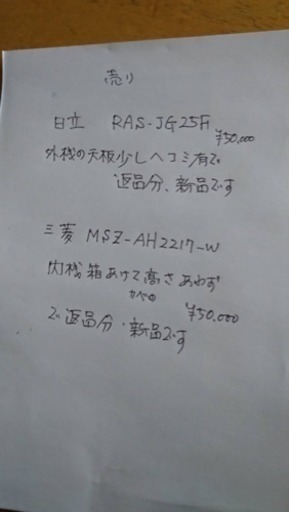 売り
日立 RAS-JG25H
¥50,000
外機の天板少しヘコミ有で
返品分、新品です
三菱 MSZ-AH2217-W
内機箱あけて高さあわず
かべの
¥50,000
で返品分・新品です